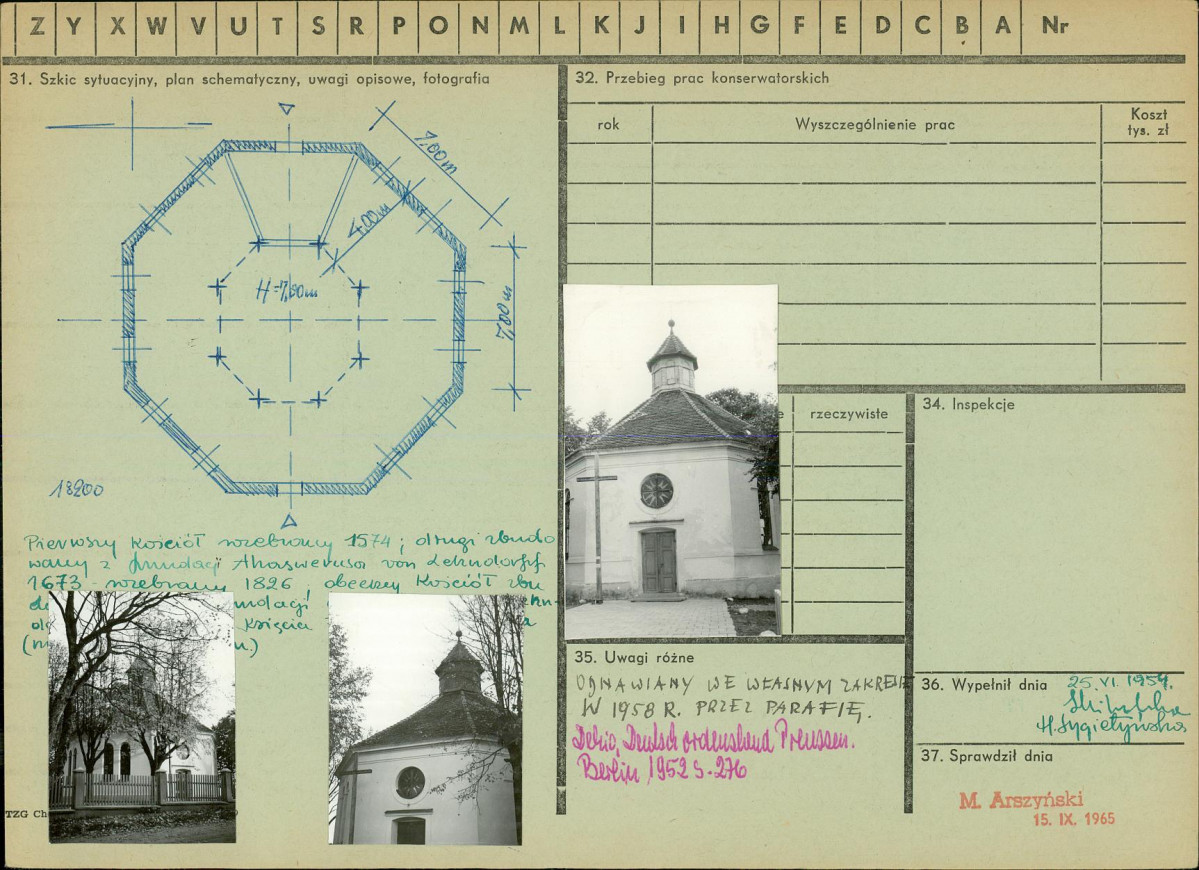 Z Y X W V U T S R P O N M L K J I H G F E D C B A Nr
31. Szkic sytuacyjny, plan schematyczny, uwagi opisowe, fotografia
7.00m
4.00m
H=7,80m
7,00m
1:200
Pierwszy kościół rozebrany 1574; drugi zbudo
wany z fundacji Ahaswerusa von Lehndorff
1673 rozebrany 1826, obecny kościół zbu
fundacji
księcia
32. Przebieg prac konserwatorskich
rok Wyszczególnienie prac Koszt
tys. zł
rzeczywiste
34. Inspekcje
35. Uwagi różne
ODNAWIANY WE WŁASNYM ZAKRESIE
W 1958 R. PRZEZ PARAFIĘ.
Dehio, Deutschordensland Preussen.
Berlin 1952 s. 276
36. Wypełnił dnia 25.VI.1959.
H. Sygietyńska
37. Sprawdził dnia
M. Arszyński
15. IX. 1965
TZG